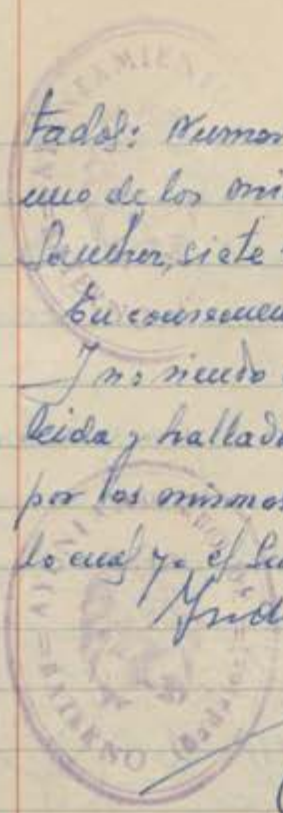 tados: Numer
uno de los mi
Sanchez, siete
En consecuen
Y no siendo
leida y hallada
por los mismos
lo cual yo el Se
AYUNTAMIENTO
(Badajoz)